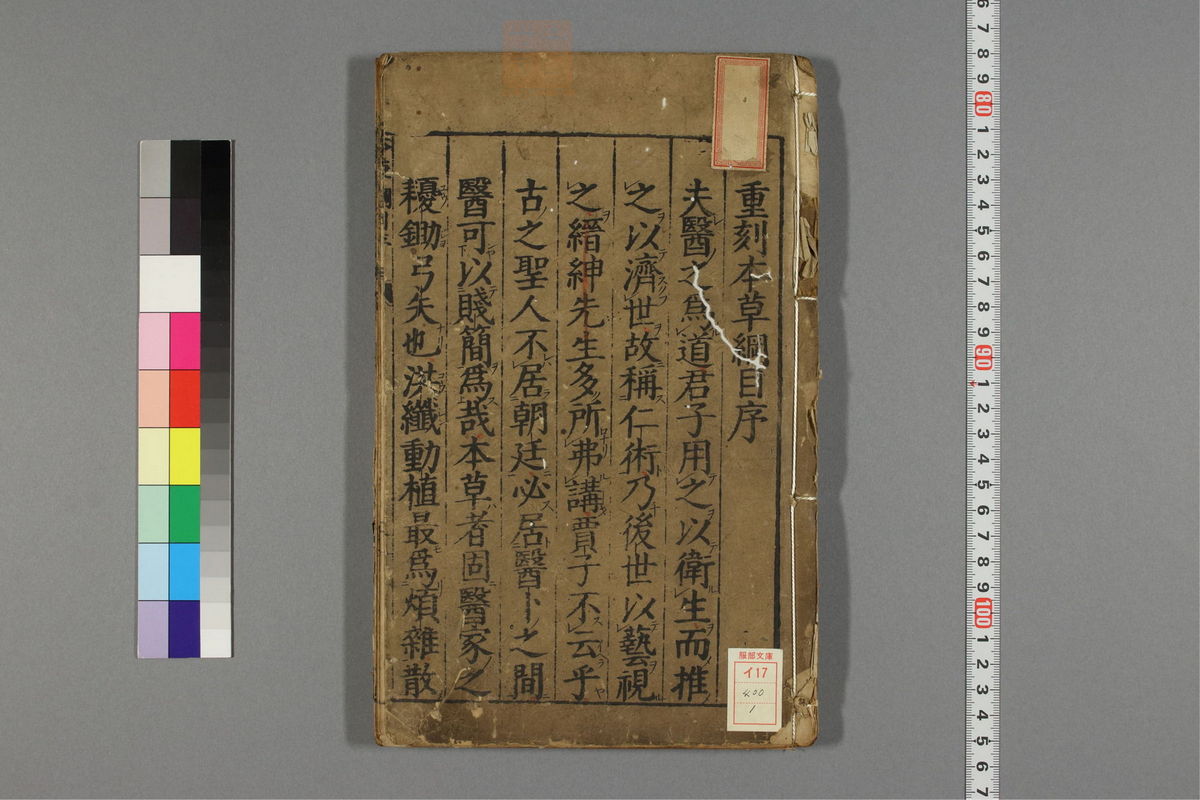 重刻本草綱目序
夫醫之爲道君子用之以衛生而推
之以濟世故稱仁術乃後世以藝視
之縉紳先生多所弗講賈子不云乎
古之聖人不居朝廷必居醫卜之間
醫可以賤簡爲哉本草者固醫家之
耰鋤弓矢也洪纖動植最爲煩雜散
服部文庫
イ17
400
1
6
7
8
9
80
1
2
3
4
5
6
7
8
9
90
1
2
3
4
5
6
7
8
9
100
1
2
3
4
5
6
7